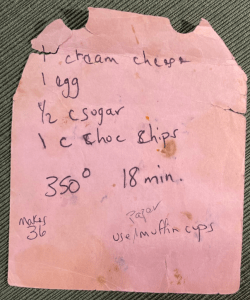 cream cheese
1 egg
1/2 c sugar
1 c choc chips
350° 18 min.
makes
36
paper
use muffin cups